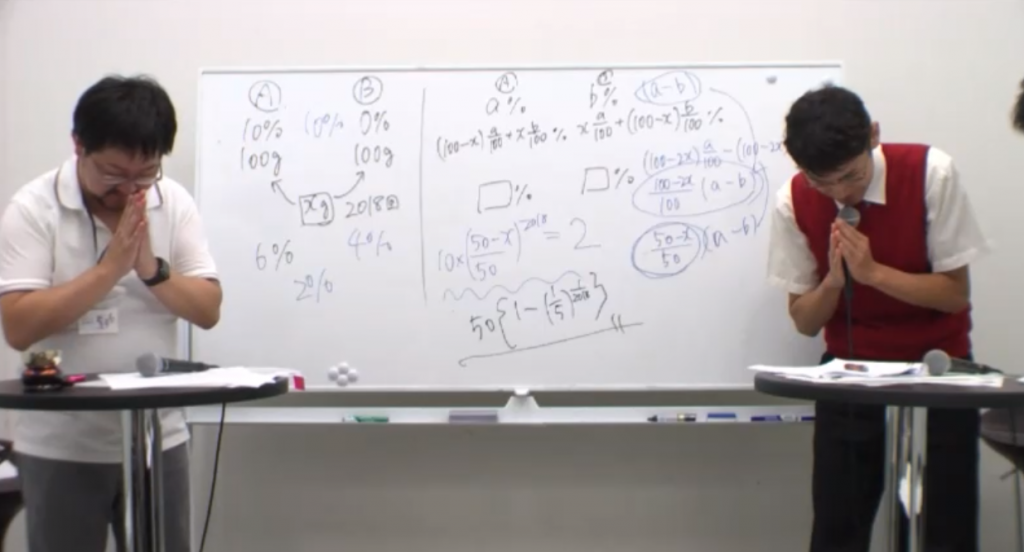 Ⓐ Ⓑ
10% 10% 0%
100g 100g
xg 2018回
6% 4%
2%
Ⓐ Ⓑ
a% b% (a-b)
(100-x)a/100+x b/100% x a/100+(100-x)b/100%
(100-2x)a/100-(100-2x
□% □% (100-2x)/100(a-b)
10×((50-x)/50)^2018=2 (50-x)/50(a-b)
50{1-(1/5)^(1/2018)}